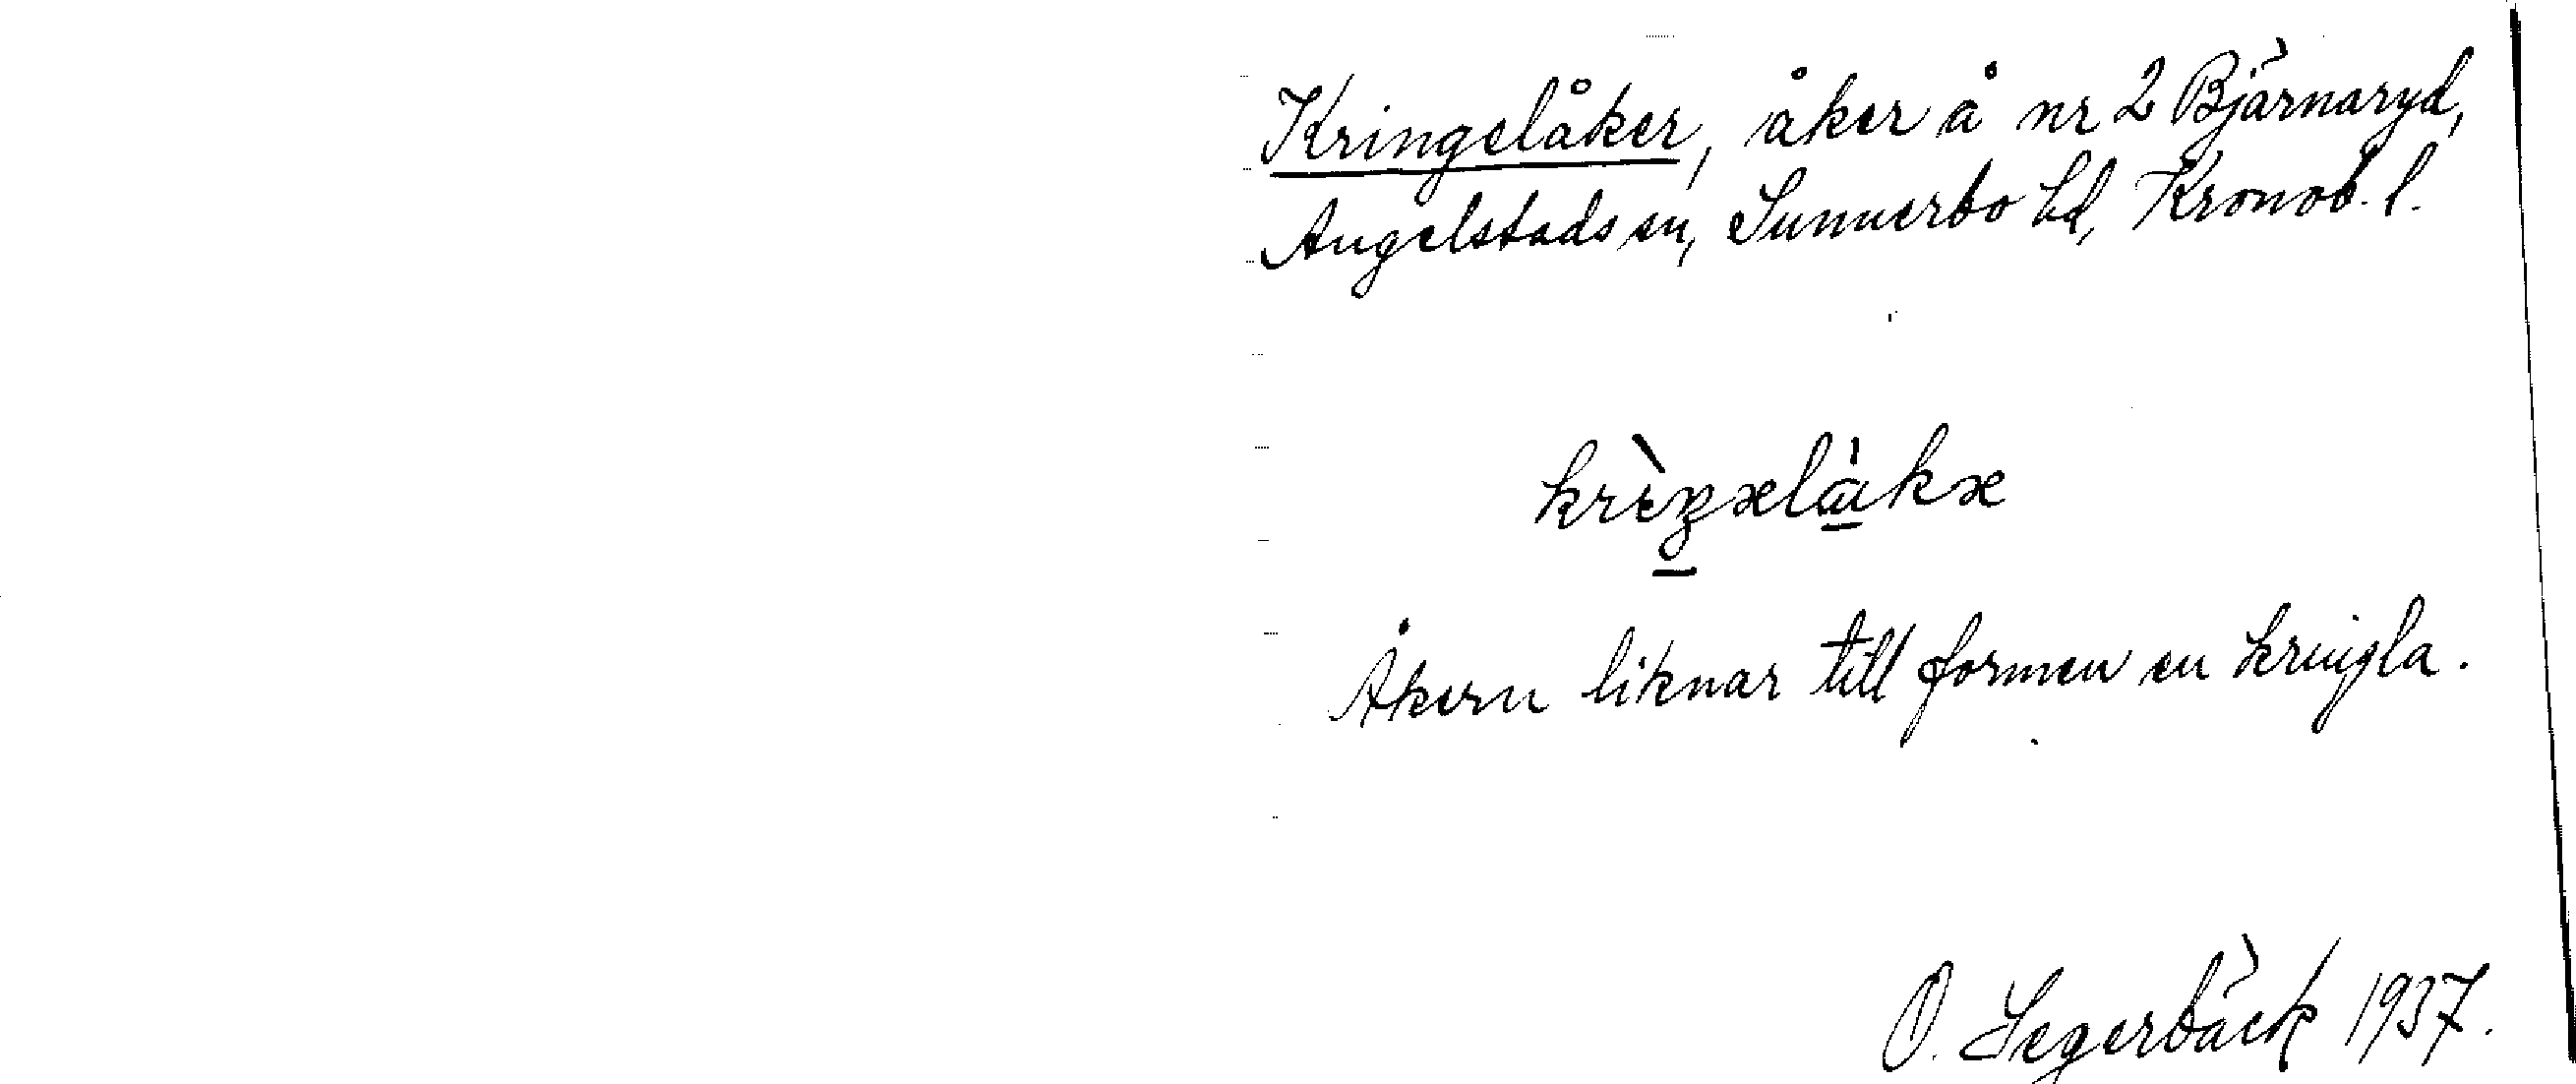 Kringelåker, åker å nr 2 Bjärnaryd,
Angelstads sn, Sunnerbo hd, Kronob. l.
Åkern liknar till formen en kringla.
O. Segerbäck 1937.